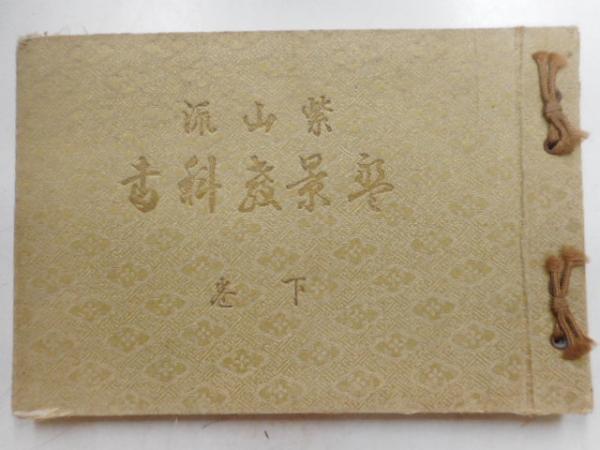 紫山流
盤景教科書
下巻